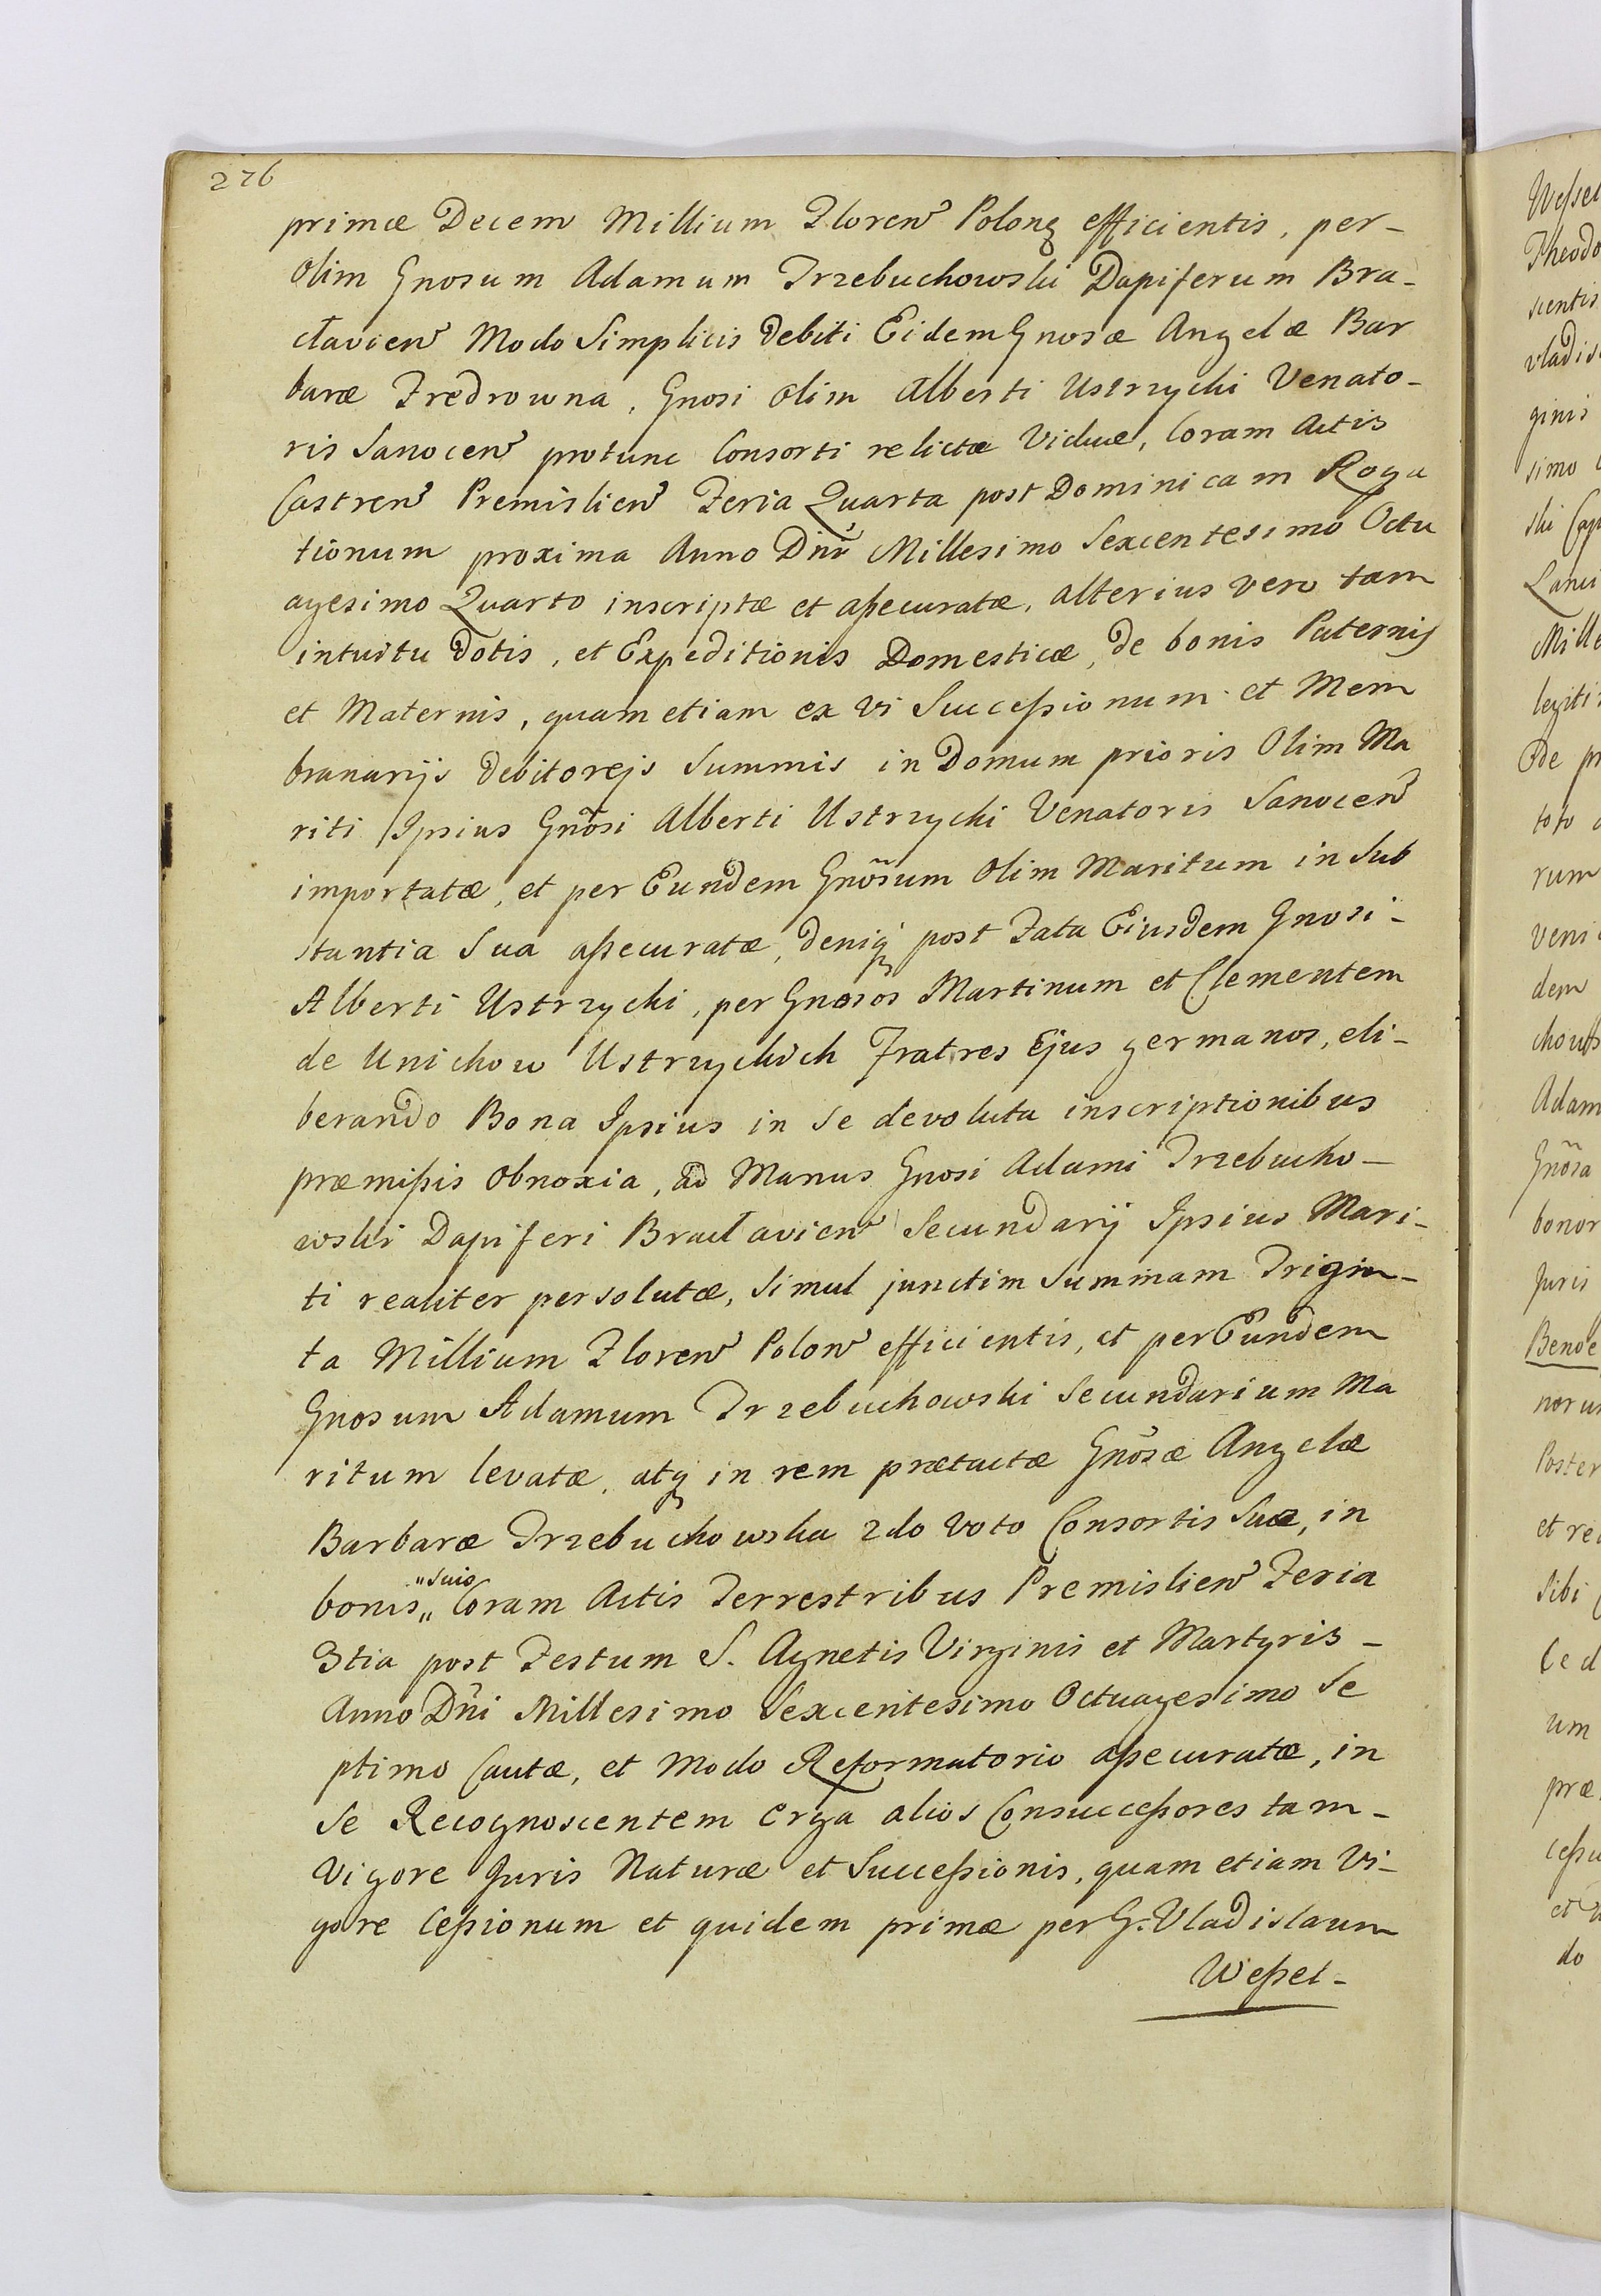 276
primæ Decem Millium Floren Polonꝫ efficientis, per-
olim Gnosum Adamum Trzebuchowski Dapiferum Bra-
clavien Modo Simplicis debiti Eidem Gnosæ Angelæ Bar
baræ Fredrowna, Gnosi olim Alberti Ustrzycki Venato-
ris Sanocen protunc Consorti relictæ Viduæ, Coram Actis
Castren Premislien Feria Quarta post Dominicam Roga
tionum proxima Anno Dñi Millesimo Sexcentesimo Octu
agesimo Quarto inscriptæ et aßecuratæ, alterius vero tam
intuitu Dotis, et Expeditionis Domesticæ, de bonis Paternis
et Maternis, quam etiam ex vi Succeßionum et Mem
branarijs debitorejs Summis in Domum prioris Olim Ma
riti Ipsius Gnõsi Alberti Ustrzycki Venatoris Sanocen
importatæ, et per Eundem Gnõsum olim Maritum in Sub
stantia Sua aßecuratæ, deniqꝫ post Fata Eiusdem Gnosi-
Alberti Ustrzycki, per Gnosos Martinum et Clementem
de Unichow Ustrzyckich Fratres Ejus germanos, eli-
berando Bona Ipsius in se devoluta inscriptionibus
præmißis obnoxia, ad Manus Gnosi Adami Trzebucho-
wski Dapiferi Braclavien Secundarij Ipsius Mari-
ti realiter persolutæ, Simul junctim Summam Trigin-
ta Millium Floren Polon efficientis, et per Eundem
Gnosum Adamum Trzebuchowski Secundarium Ma
ritum levatæ, atqꝫ in rem prætactæ Gnõsæ Angelæ
Barbaræ Trzebuchowska 2do Voto Consortis Suæ, in
bonis „suis„ Coram Actis Terrestribus Premislien Feria
3tia post Festum S. Agnetis Virginis et Martyris-
Anno Dñi Millesimo Sexcentesimo Octuagesimo Se
ptimo Cautæ, et Modo Reformatorio aßecuratæ, in
Se Recognoscentem erga alios Consucceßores tam-
Vigore Juris Naturæ et Succeßionis, quam etiam Vi-
gore Ceßionum et quidem primæ per G. Vladislaum
Weßel-